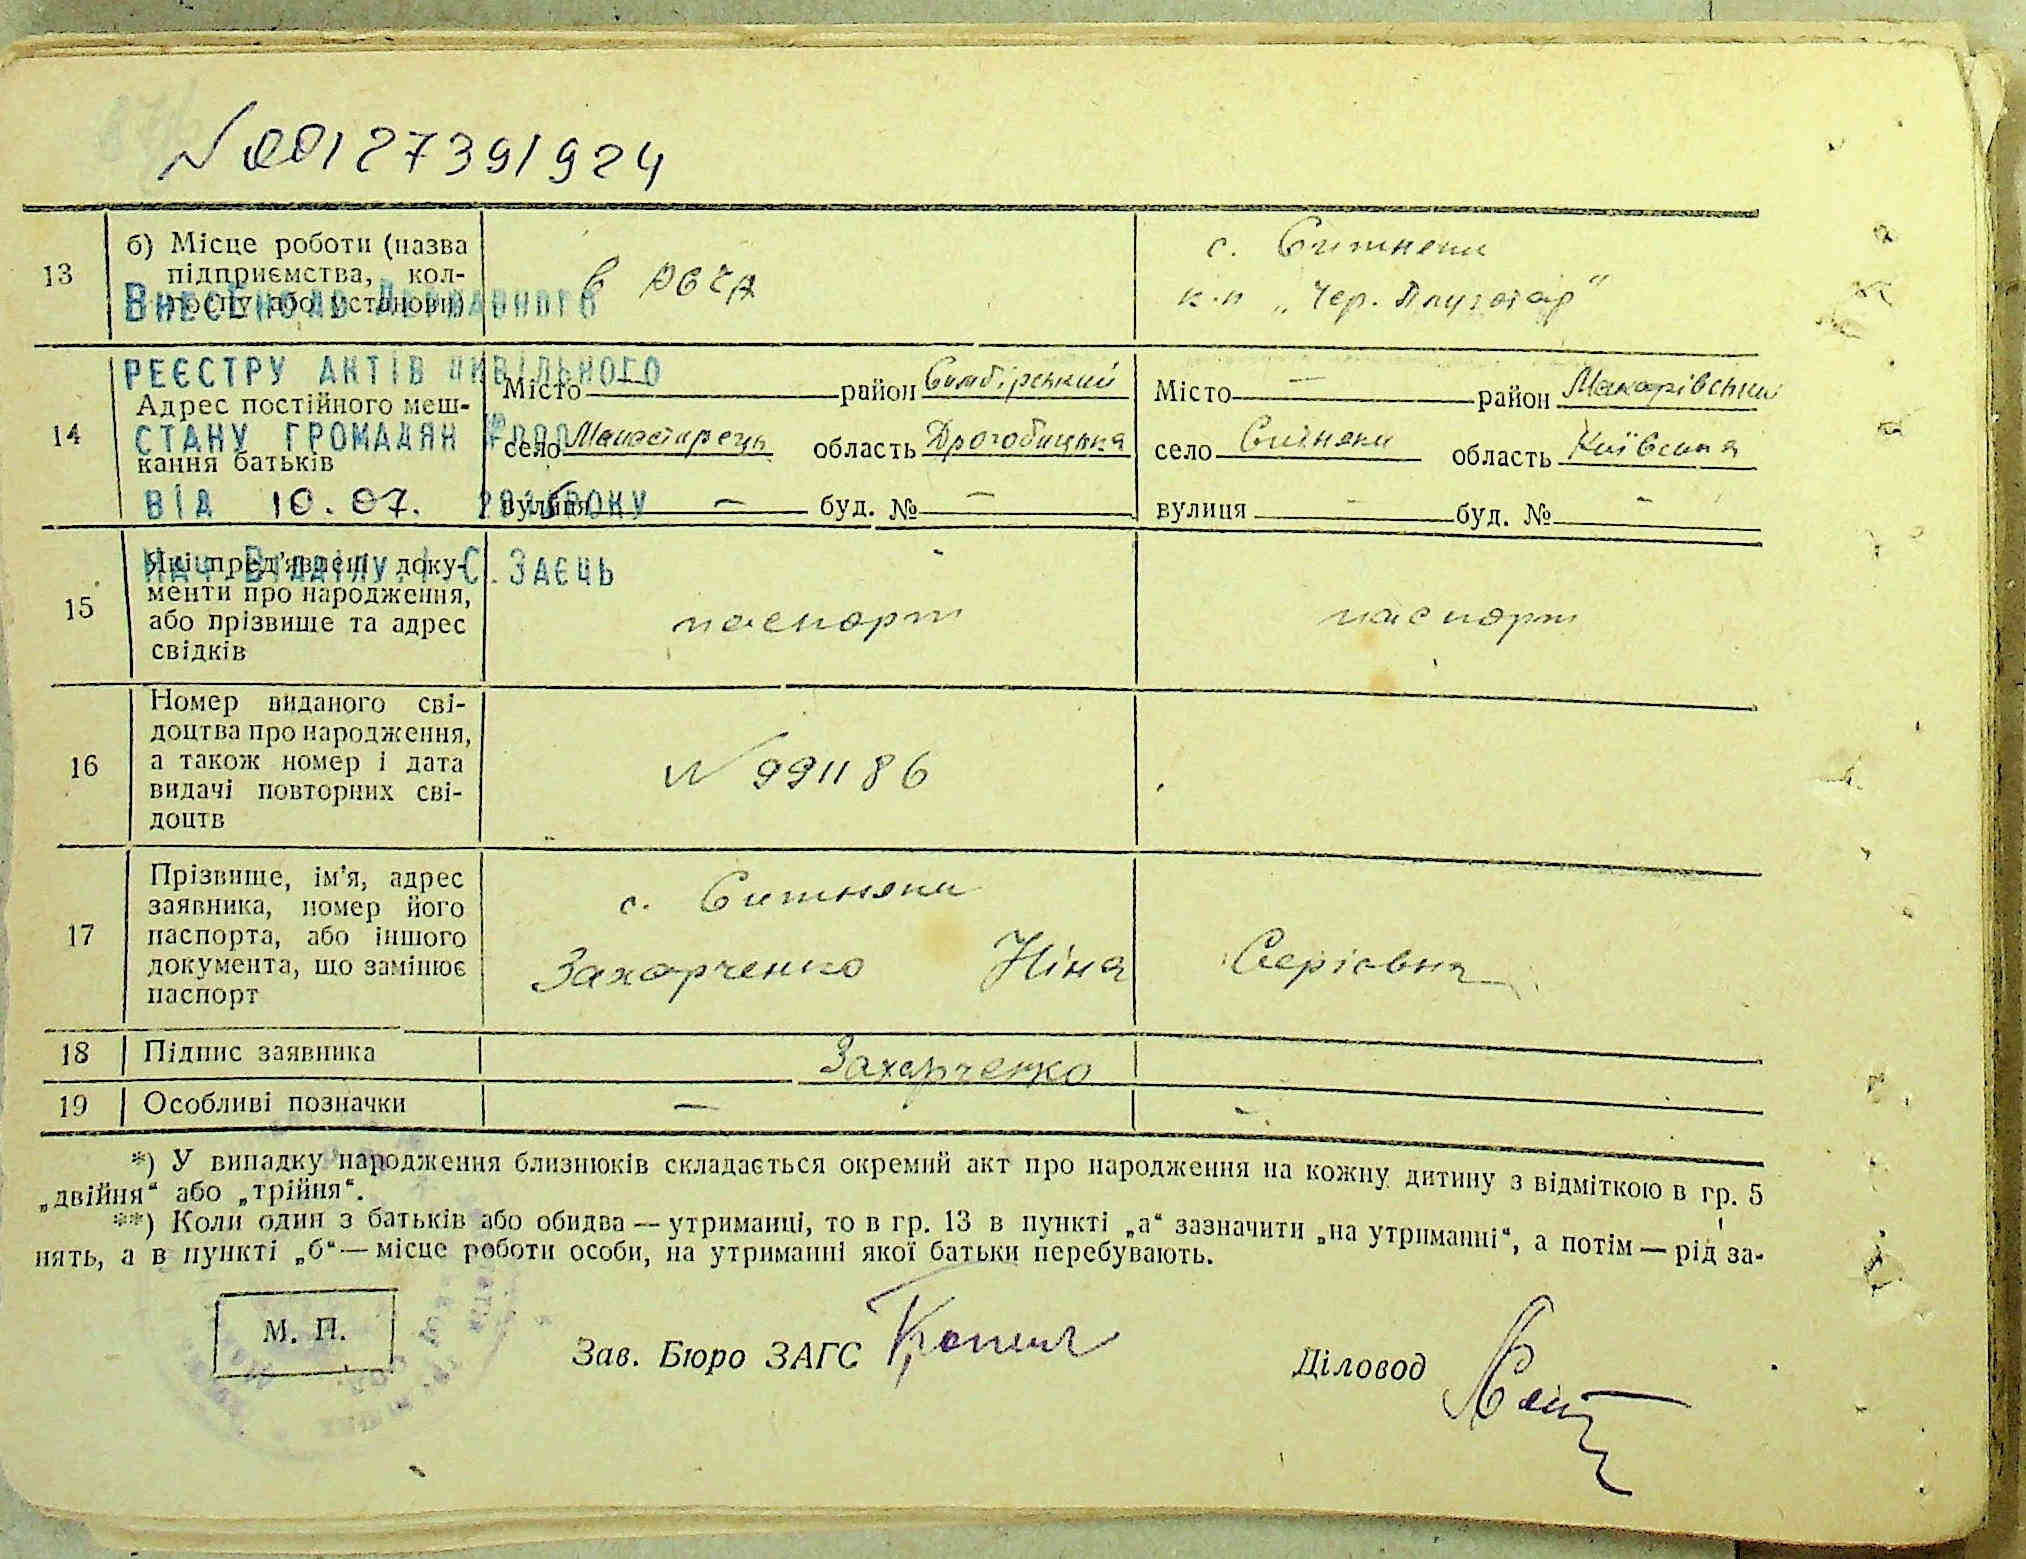 №00127391924
13
б) Місце роботи (назва
підприємства, кол-
госпу або установи)
в РСЧА
с. Ситняки
к-п „Чер. Плугатар“
Внесено до Державного
реєстру актів цивільного
стану громадян
від 10.07. року
Нач. Відділу І. С. Заєць
14
Адрес постійного меш-
кання батьків
Місто — район Самбірський
село Манастирець область Дрогобицька
вулиця — буд. № —
Місто — район Макарівський
село Ситняки область Київська
вулиця — буд. № —
15
Які пред'явлені доку-
менти про народження,
або прізвище та адрес
свідків
паспорт
паспорт
16
Номер виданого сві-
доцтва про народження,
а також номер і дата
видачі повторних сві-
доцтв
№ 991186
17
Прізвище, ім'я, адрес
заявника, номер його
паспорта, або іншого
документа, що замінює
паспорт
с. Ситняки
Захарченко Ніна
18 Підпис заявника
Захарченко
19 Особливі позначки — -
*) У випадку народження близнюків складається окремий акт про народження на кожну дитину з відміткою в гр. 5
„двійня“ або „трійня“.
**) Коли один з батьків або обидва — утриманці, то в гр. 13 в пункті „а“ зазначити „на утриманні“, а потім — рід за-
нять, а в пункті „б“ — місце роботи особи, на утриманні якої батьки перебувають.
М. П.
Зав. Бюро ЗАГС
Діловод